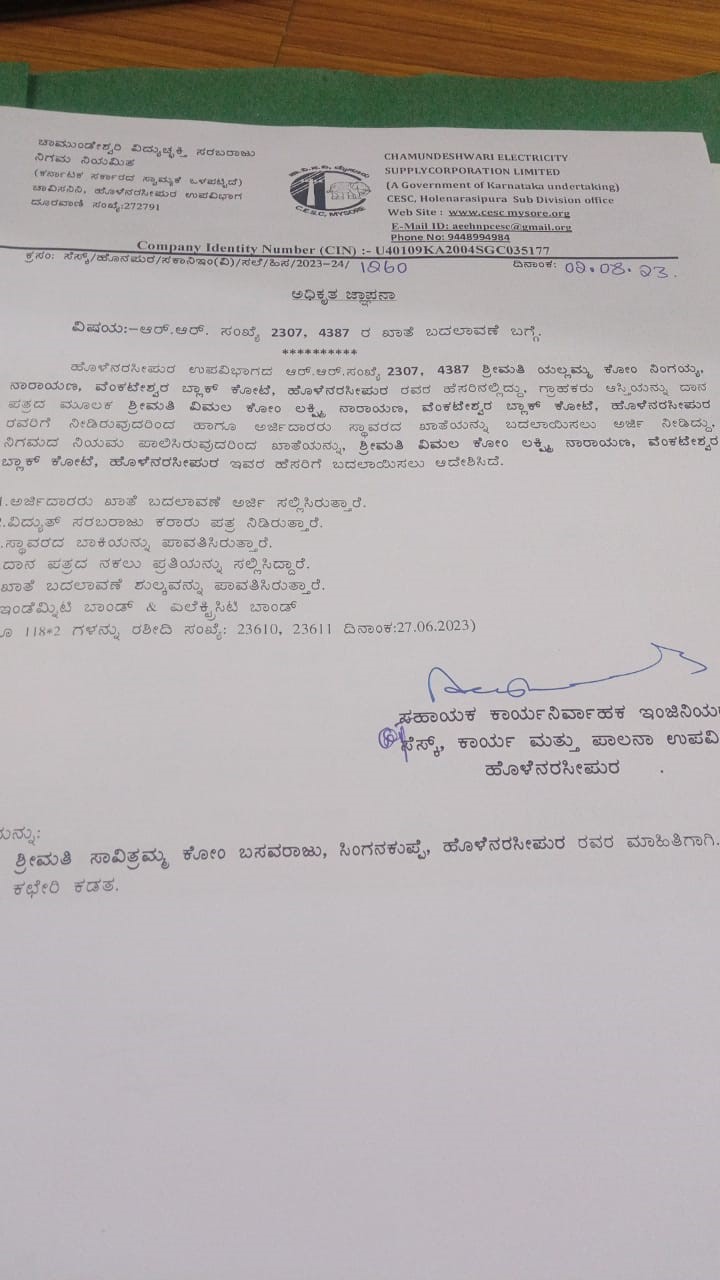 ಚಾಮುಂಡೇಶ್ವರಿ ವಿದ್ಯುಚ್ಛಕ್ತಿ ಸರಬರಾಜು
ನಿಗಮ ನಿಯಮಿತ
(ಕರ್ನಾಟಕ ಸರ್ಕಾರದ ಸ್ವಾಮ್ಯಕೆ ಒಳಪಟ್ಟಿದೆ)
ಚಾವಿಸನಿನಿ, ಹೊಳೆನರಸೀಪುರ ಉಪವಿಭಾಗ
ದೂರವಾಣಿ ಸಂಖ್ಯೆ:272791
C.E.S.C, MYSORE
CHAMUNDESHWARI ELECTRICITY
SUPPLYCORPORATION LIMITED
(A Government of Karnataka undertaking)
CESC, Holenarasipura Sub Division office
Web Site : www.cesc mysore.org
E-Mail ID: aeehnpcesc@gmail.org
Phone No: 9448994984
Company Identity Number (CIN) :- U40109KA2004SGC035177
ಕ್ರಸಂ: ಸೆಸ್ಕ್/ಹೊನಪುರ/ಸಕಾನಿಇಂ(ವಿ)/ಸಲೆ/ಹಿಸ/2023-24/ 1260 ದಿನಾಂಕ: 02.08.23.
ಅಧಿಕೃತ ಜ್ಞಾಪನಾ
ವಿಷಯ:-ಆರ್.ಆರ್. ಸಂಖ್ಯೆ 2307, 4387 ರ ಖಾತೆ ಬದಲಾವಣೆ ಬಗ್ಗೆ.
**********
ಹೊಳೆನರಸೀಪುರ ಉಪವಿಭಾಗದ ಆರ್.ಆರ್.ಸಂಖ್ಯೆ 2307, 4387 ಶ್ರೀಮತಿ ಯಲ್ಲಮ್ಮ ಕೋಂ ನಿಂಗಯ್ಯ,
ನಾರಾಯಣ, ವೆಂಕಟೇಶ್ವರ ಬ್ಲಾಕ್ ಕೋಟೆ, ಹೊಳೆನರಸೀಪುರ ರವರ ಹೆಸರಿನಲ್ಲಿದ್ದು, ಗ್ರಾಹಕರು ಆಸ್ತಿಯನ್ನು ದಾನ
ಪತ್ರದ ಮೂಲಕ ಶ್ರೀಮತಿ ವಿಮಲ ಕೋಂ ಲಕ್ಷ್ಮಿ ನಾರಾಯಣ, ವೆಂಕಟೇಶ್ವರ ಬ್ಲಾಕ್ ಕೋಟೆ, ಹೊಳೆನರಸೀಪುರ
ರವರಿಗೆ ನೀಡಿರುವುದರಿಂದ ಹಾಗೂ ಅರ್ಜಿದಾರರು ಸ್ಥಾವರದ ಖಾತೆಯನ್ನು ಬದಲಾಯಿಸಲು ಅರ್ಜಿ ನೀಡಿದ್ದು,
ನಿಗಮದ ನಿಯಮ ಪಾಲಿಸಿರುವುದರಿಂದ ಖಾತೆಯನ್ನು, ಶ್ರೀಮತಿ ವಿಮಲ ಕೋಂ ಲಕ್ಷ್ಮಿ ನಾರಾಯಣ, ವೆಂಕಟೇಶ್ವರ
ಬ್ಲಾಕ್ ಕೋಟೆ, ಹೊಳೆನರಸೀಪುರ ಇವರ ಹೆಸರಿಗೆ ಬದಲಾಯಿಸಲು ಆದೇಶಿಸಿದೆ.
1.ಅರ್ಜಿದಾರರು ಖಾತೆ ಬದಲಾವಣೆ ಅರ್ಜಿ ಸಲ್ಲಿಸಿರುತ್ತಾರೆ.
.ವಿದ್ಯುತ್ ಸರಬರಾಜು ಕರಾರು ಪತ್ರ ನಿಡಿರುತ್ತಾರೆ.
.ಸ್ಥಾವರದ ಬಾಕಿಯನ್ನು ಪಾವತಿಸಿರುತ್ತಾರೆ.
ದಾನ ಪತ್ರದ ನಕಲು ಪ್ರತಿಯನ್ನು ಸಲ್ಲಿಸಿದ್ದಾರೆ.
ಖಾತೆ ಬದಲಾವಣೆ ಶುಲ್ಕವನ್ನು ಪಾವತಿಸಿರುತ್ತಾರೆ.
ಇಂಡೆಮ್ನಿಟಿ ಬಾಂಡ್ & ಎಲೆಕ್ಟ್ರಿಸಿಟಿ ಬಾಂಡ್
ರೂ 118*2 ಗಳನ್ನು ರಶೀದಿ ಸಂಖ್ಯೆ: 23610, 23611 ದಿನಾಂಕ:27.06.2023)
ಸಹಾಯಕ ಕಾರ್ಯನಿರ್ವಾಹಕ ಇಂಜಿನಿಯ
ಸೆಸ್ಕ್, ಕಾರ್ಯ ಮತ್ತು ಪಾಲನಾ ಉಪವಿ
ಹೊಳೆನರಸೀಪುರ .
ಯನ್ನು:
ಶ್ರೀಮತಿ ಸಾವಿತ್ರಮ್ಮ ಕೋಂ ಬಸವರಾಜು, ಸಿಂಗನಕುಪ್ಪೆ, ಹೊಳೆನರಸೀಪುರ ರವರ ಮಾಹಿತಿಗಾಗಿ.
ಕಛೇರಿ ಕಡತ.